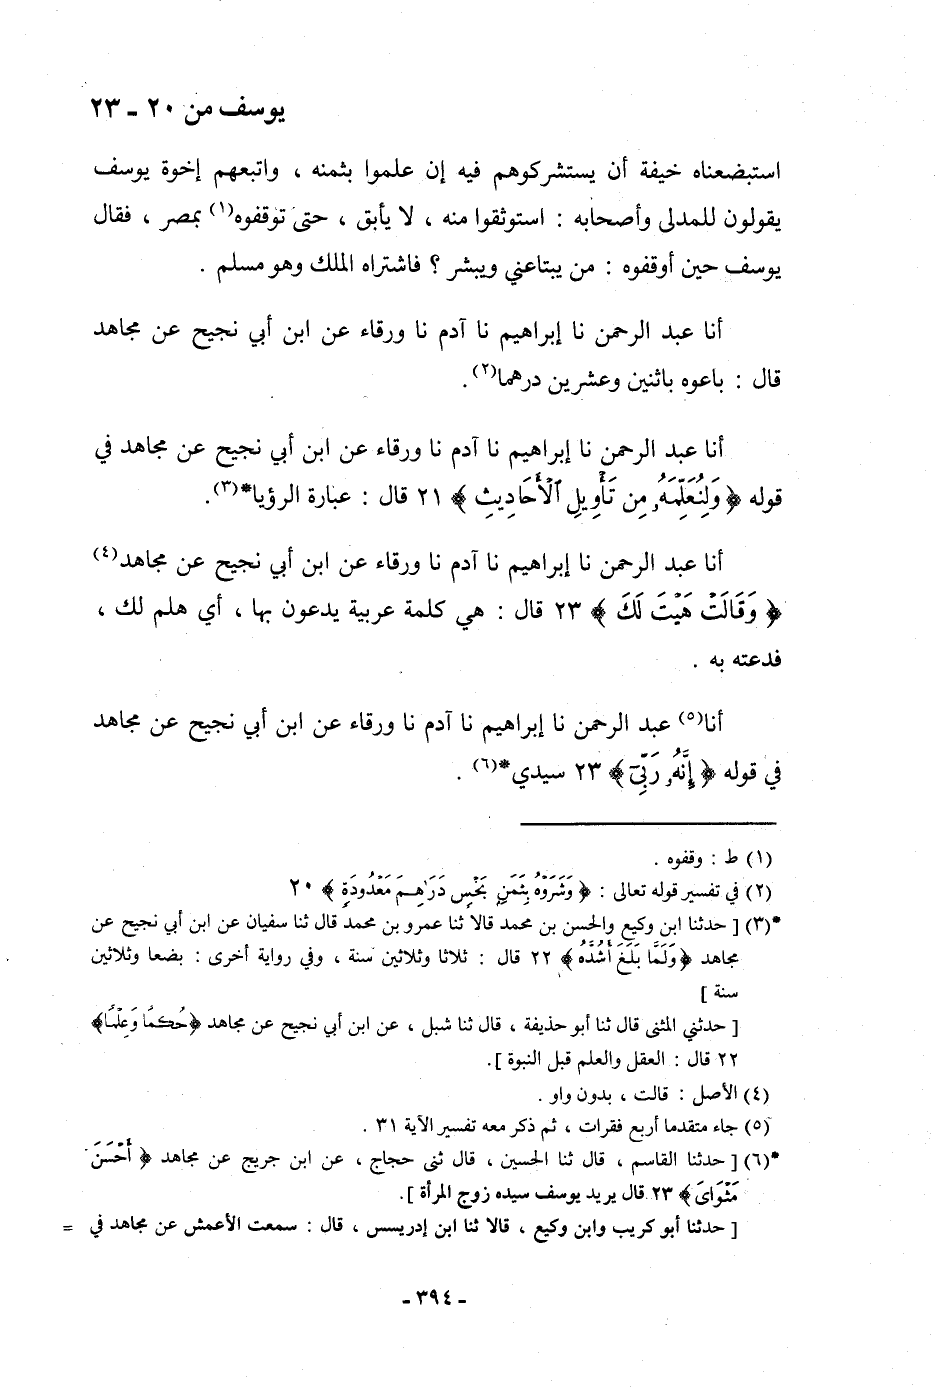 يوسف من ٢٠ ـ ٢٣
استبضعناه خيفة أن يستشركوهم فيه إن علموا بثمنه ، واتبعهم إخوة يوسف
يقولون للمدلى وأصحابه : استوثقوا منه ، لا يأبق ، حتى توقفوه(١) بمصر ، فقال
يوسف حين أوقفوه : من يبتاعني ويبشر ؟ فاشتراه الملك وهو مسلم .
أنا عبد الرحمن نا إبراهيم نا آدم نا ورقاء عن ابن أبي نجيح عن مجاهد
قال : باعوه باثنين وعشرين درهما(٢).
أنا عبد الرحمن نا إبراهيم نا آدم نا ورقاء عن ابن أبي نجيح عن مجاهد في
قوله ﴿ وَلِنُعَلِّمَهُۥ مِن تَأْوِيلِ ٱلْأَحَادِيثِ ﴾ ٢١ قال : عبارة الرؤيا*(٣).
أنا عبد الرحمن نا إبراهيم نا آدم نا ورقاء عن ابن أبي نجيح عن مجاهد(٤)
﴿ وَقَالَتْ هَيْتَ لَكَ ﴾ ٢٣ قال : هي كلمة عربية يدعون بها ، أي هلم لك ،
فدعته به .
أنا(٥) عبد الرحمن نا إبراهيم نا آدم نا ورقاء عن ابن أبي نجيح عن مجاهد
في قوله ﴿ إِنَّهُۥ رَبِّىٓ ﴾ ٢٣ سيدي*(٦) .
(١) ط : وقفوه .
(٢) في تفسير قوله تعالى : ﴿ وَشَرَوْهُ بِثَمَنٍۭ بَخْسٍ دَرَٰهِمَ مَعْدُودَةٍ ﴾ ٢٠
*(٣) [ حدثنا ابن وكيع والحسن بن محمد قالا ثنا عمرو بن محمد قال ثنا سفيان عن ابن أبي نجيح عن
مجاهد ﴿وَلَمَّا بَلَغَ أَشُدَّهُ ﴾ ٢٢ قال : ثلاثا وثلاثين سنة ، وفي رواية أخرى : بضعا وثلاثين
سنة ]
[ حدثني المثنى قال ثنا أبو حذيفة ، قال ثنا شبل ، عن ابن أبي نجيح عن مجاهد ﴿حُكْمًا وَعِلْمًا﴾
٢٢ قال : العقل والعلم قبل النبوة ].
(٤) الأصل : قالت ، بدون واو .
(٥) جاء متقدما أربع فقرات ، ثم ذكر معه تفسير الآية ٣١ .
*(٦) [ حدثنا القاسم ، قال ثنا الحسين ، قال ثنى حجاج ، عن ابن جريج عن مجاهد ﴿ أَحْسَنَ
مَثْوَاىَ ﴾ ٢٣ قال يريد يوسف سيده زوج المرأة ].
[ حدثنا أبو كريب وابن وكيع ، قالا ثنا ابن إدريسس ، قال : سمعت الأعمش عن مجاهد في =
- ٣٩٤ -